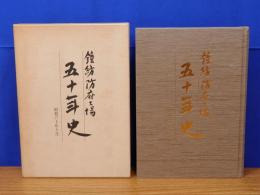 鐘紡防府工場
五十年史
鐘紡防府工場
五十年史